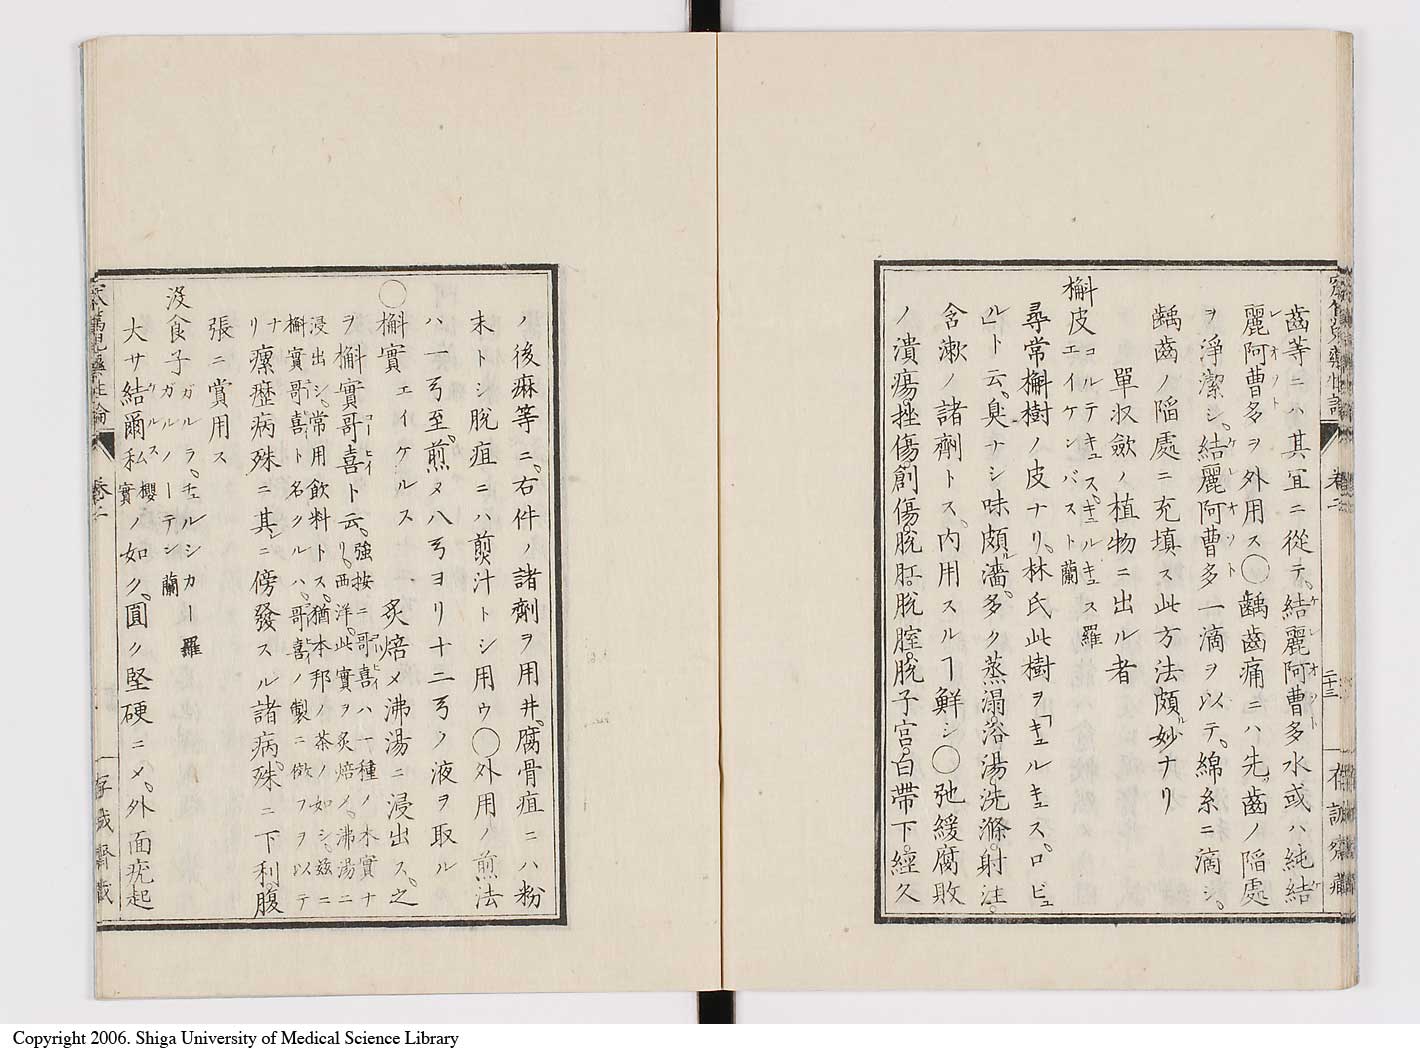 齒等ニハ其宜ニ從テ結麗阿曹多水或ハ純結
麗阿曹多ヲ外用ス○齲齒痛ニハ先齒ノ陷處
ヲ淨潔シ結麗阿曹多一滴ヲ以テ綿糸ニ滴シ
齲齒ノ陷處ニ充填ス此方法頗ル妙ナリ
單収斂ノ植物ニ出ル者
槲皮 コルテキュス、キュルキュス 羅
エイケンバスト 蘭
尋常槲樹ノ皮ナリ林氏此樹ヲ「キュルキュス、ロビュ
ル」ト云臭ナシ味頗ル濇多ク蒸溻浴湯洗滌射注
含漱ノ諸劑トス内用スルヿ鮮シ○弛緩腐敗
ノ潰瘍挫傷創傷脱肛脱腟脱子宮白帶下經久
ノ後痲等ニ右件ノ諸劑ヲ用井腐骨疽ニハ粉
末トシ脱疽ニハ煎汁トシ用ウ○外用ノ煎法
ハ一弓至煎メ八弓ヨリ十二弓ノ液ヲ取ル
○槲實 エイケルス 炙焙メ沸湯ニ浸出ス之
ヲ槲實哥喜ト云リ 強按ニ哥喜ハ一種ノ木實ナ
西洋此實ヲ炙焙メ沸湯ニ
浸出シ常用飲料トス猶本邦ノ茶ノ如シ茲ニ
槲實哥喜ト名クルハ哥喜ノ製ニ傚フヲ以テ
ナリ 瘰癧病殊ニ其ニ傍發スル諸病殊ニ下利腹
張ニ賞用ス
沒食子 ガルラ、チュルシカー 羅
ガルノーテン 蘭
大サ結爾私 櫻實 ノ如ク圓ク堅硬ニメ外面疣起
卷二
二十三
存誠齋藏
Copyright 2006. Shiga University of Medical Science Library